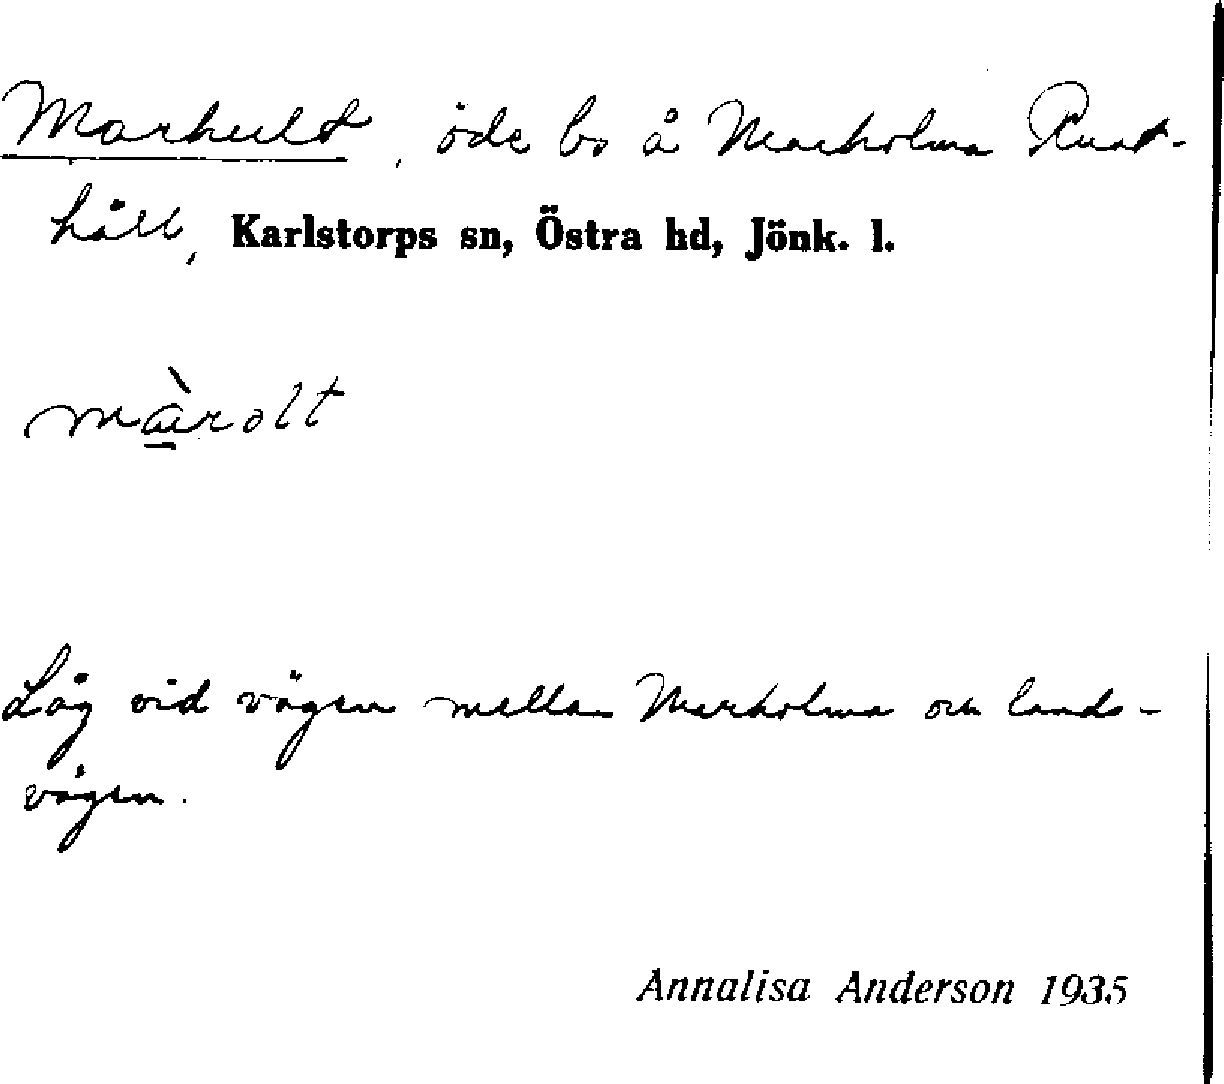 Marhult, öde bo å Marholma Rust-
håll, Karlstorps sn, Östra hd, Jönk. l.
màrolt
Låg vid vägen mellan Marholma och lands-
vägen.
Annalisa Anderson 1935